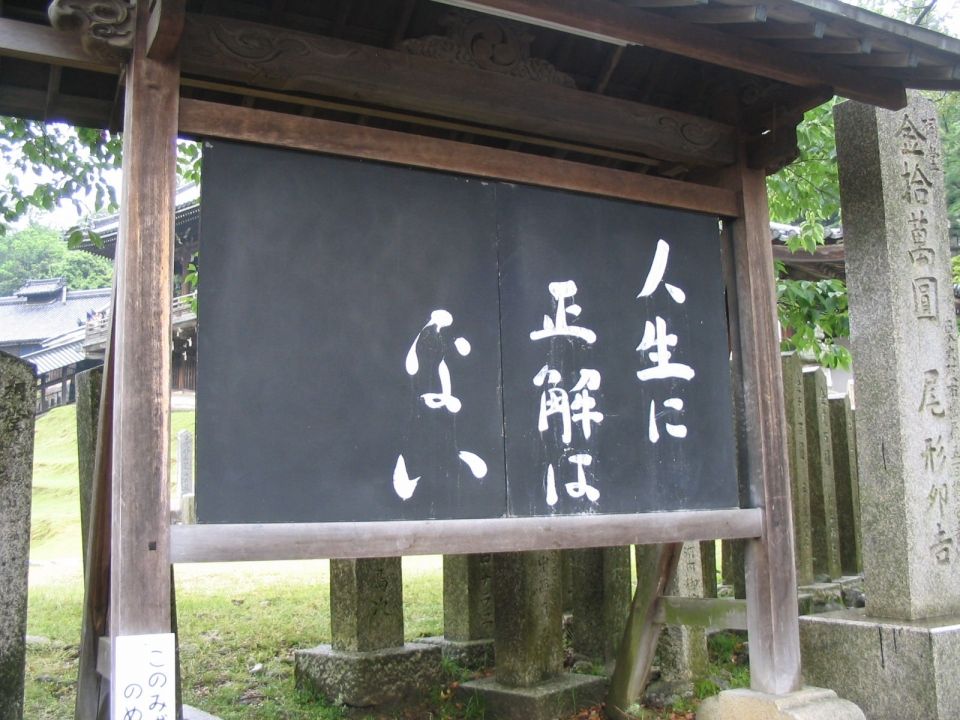 人生に
正解は
ない
金拾萬圓 尾形卯吉
このみ
のめ